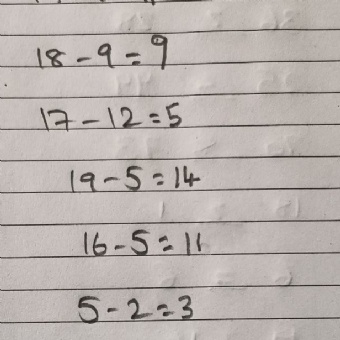 18 - 9 = 9
17 - 12 = 5
19 - 5 = 14
16 - 5 = 11
5 - 2 = 3